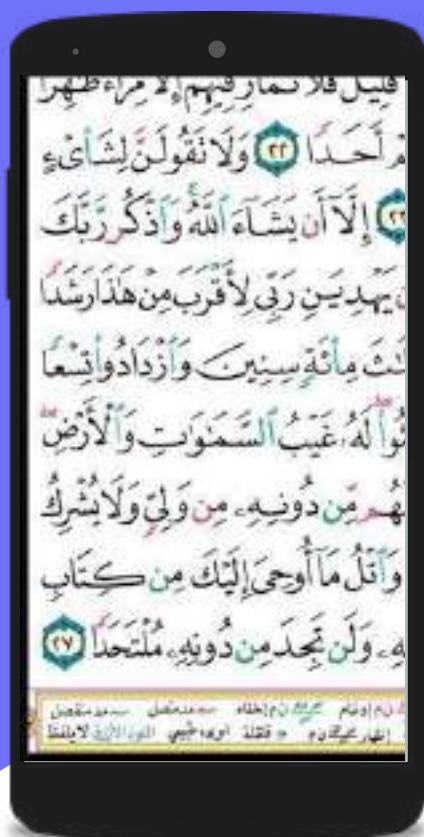 قَلِيلٌ فَلَا تُمَارِ فِيهِمْ إِلَّا مِرَآءً ظَٰهِرًا
مْ أَحَدًا ٢٢ وَلَا تَقُولَنَّ لِشَا۟ىْءٍ
٢٣ إِلَّآ أَن يَشَآءَ ٱللَّهُ وَٱذْكُر رَّبَّكَ
ن يَهْدِيَنِ رَبِّى لِأَقْرَبَ مِنْ هَٰذَا رَشَدًا
لَٰثَ مِا۟ئَةٍ سِنِينَ وَٱزْدَادُوا۟ تِسْعًا
ثُوا۟ لَهُۥ غَيْبُ ٱلسَّمَٰوَٰتِ وَٱلْأَرْضِ
لَهُم مِّن دُونِهِۦ مِن وَلِىٍّ وَلَا يُشْرِكُ
وَٱتْلُ مَآ أُوحِىَ إِلَيْكَ مِن كِتَابِ
هِۦ وَلَن تَجِدَ مِن دُونِهِۦ مُلْتَحَدًا ٢٧